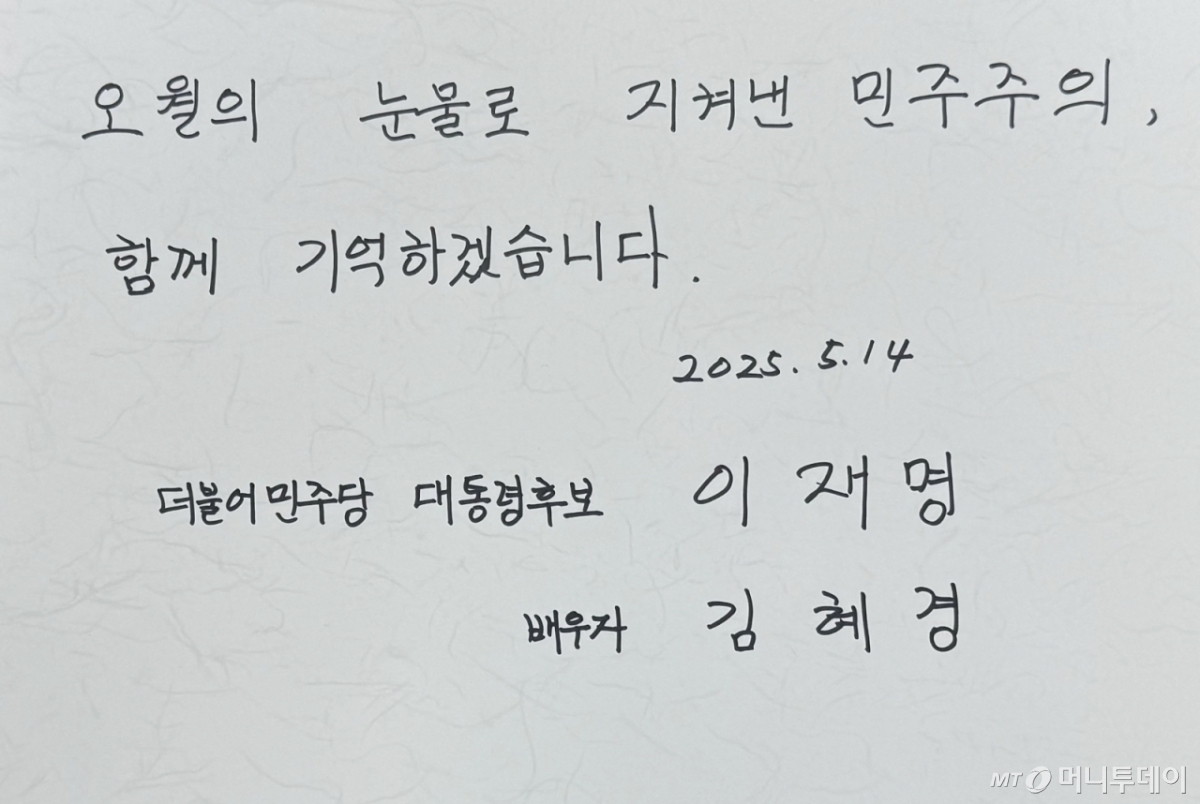 오월의 눈물로 지켜낸 민주주의,
함께 기억하겠습니다.
2025. 5. 14
더불어민주당 대통령후보 이재명
배우자 김혜경
MT 머니투데이